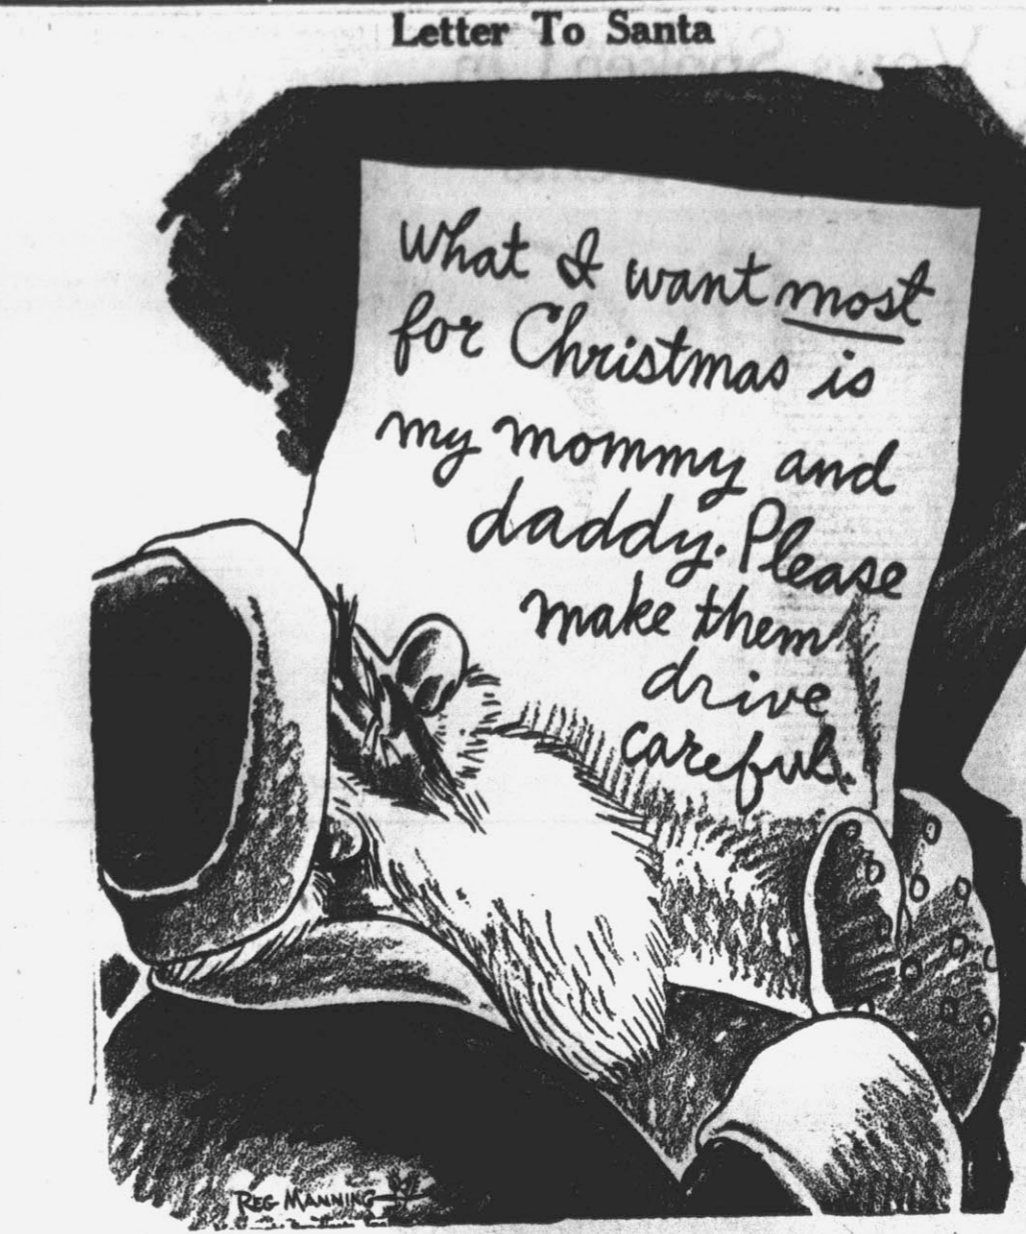 Letter To Santa
What I want most
for Christmas is
my mommy and
daddy. Please
make them
drive
careful.
REG MANNING